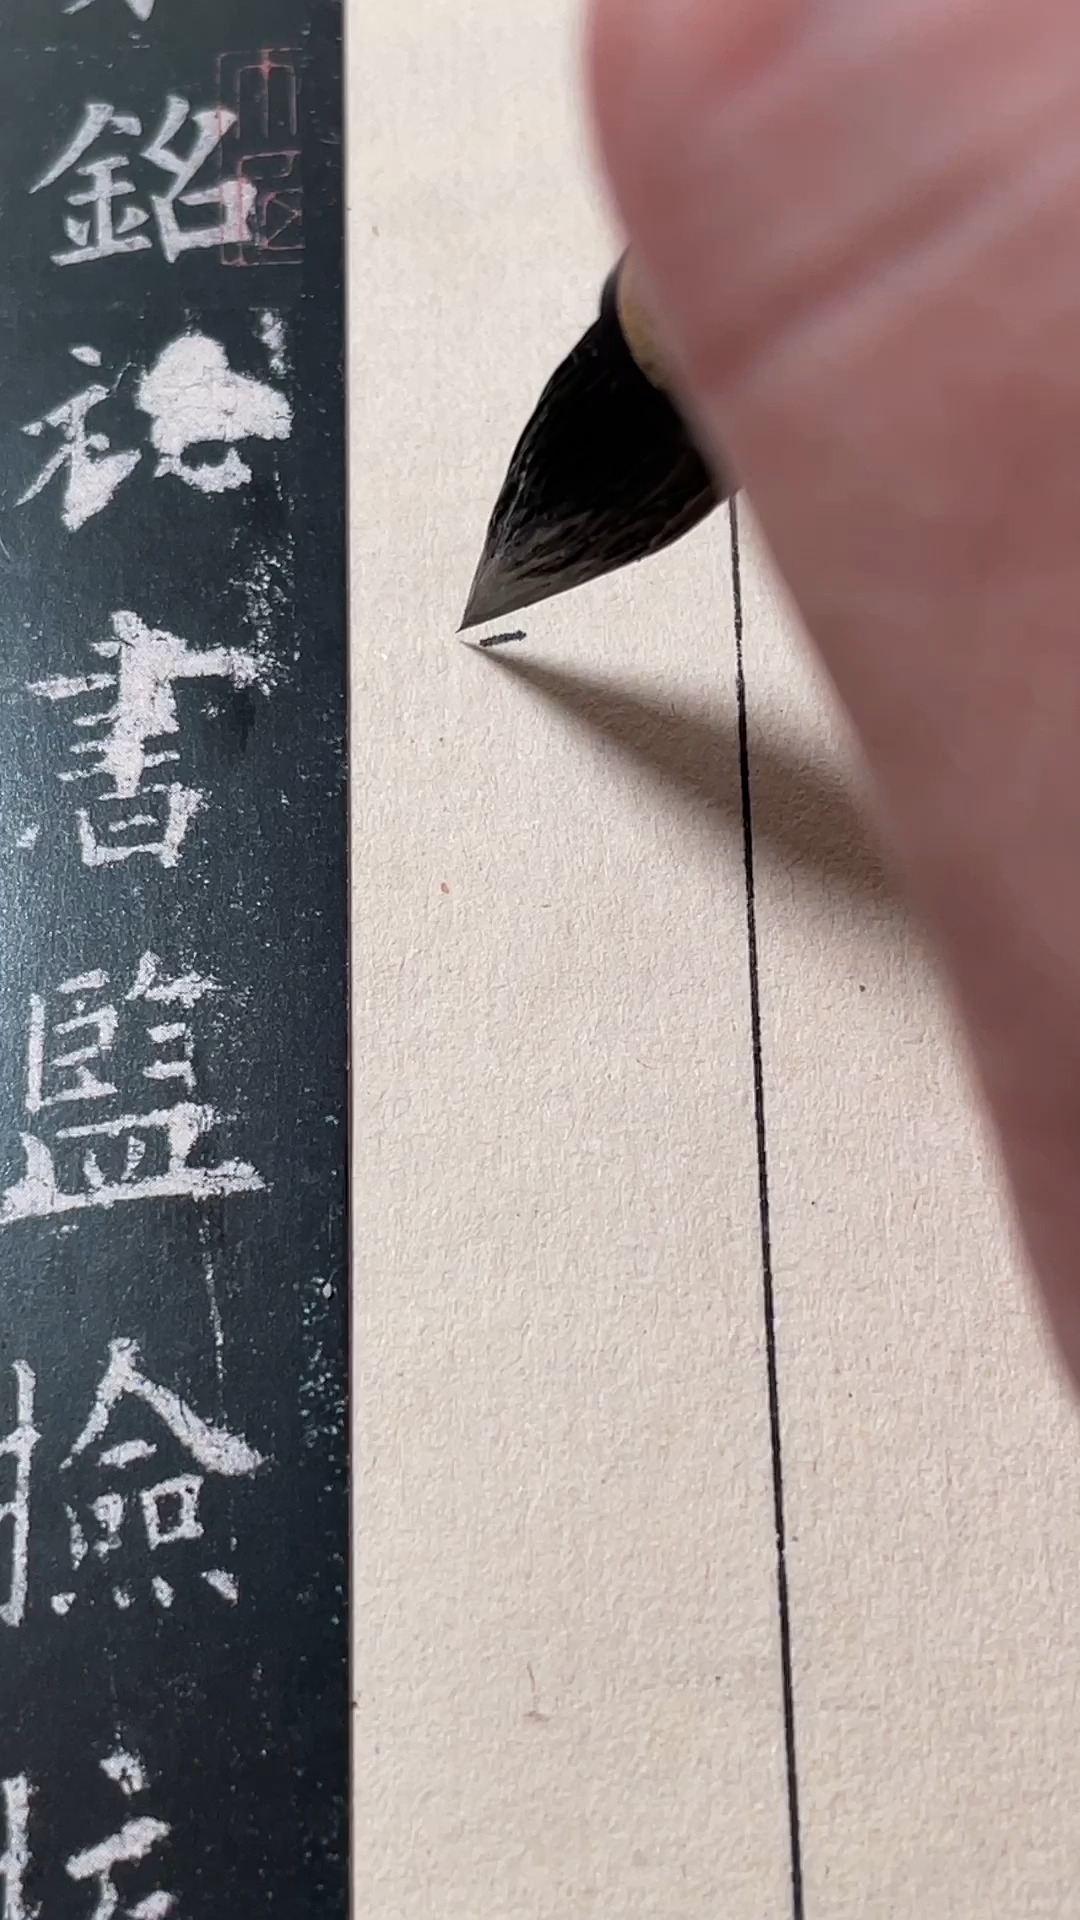 銘祕書監檢